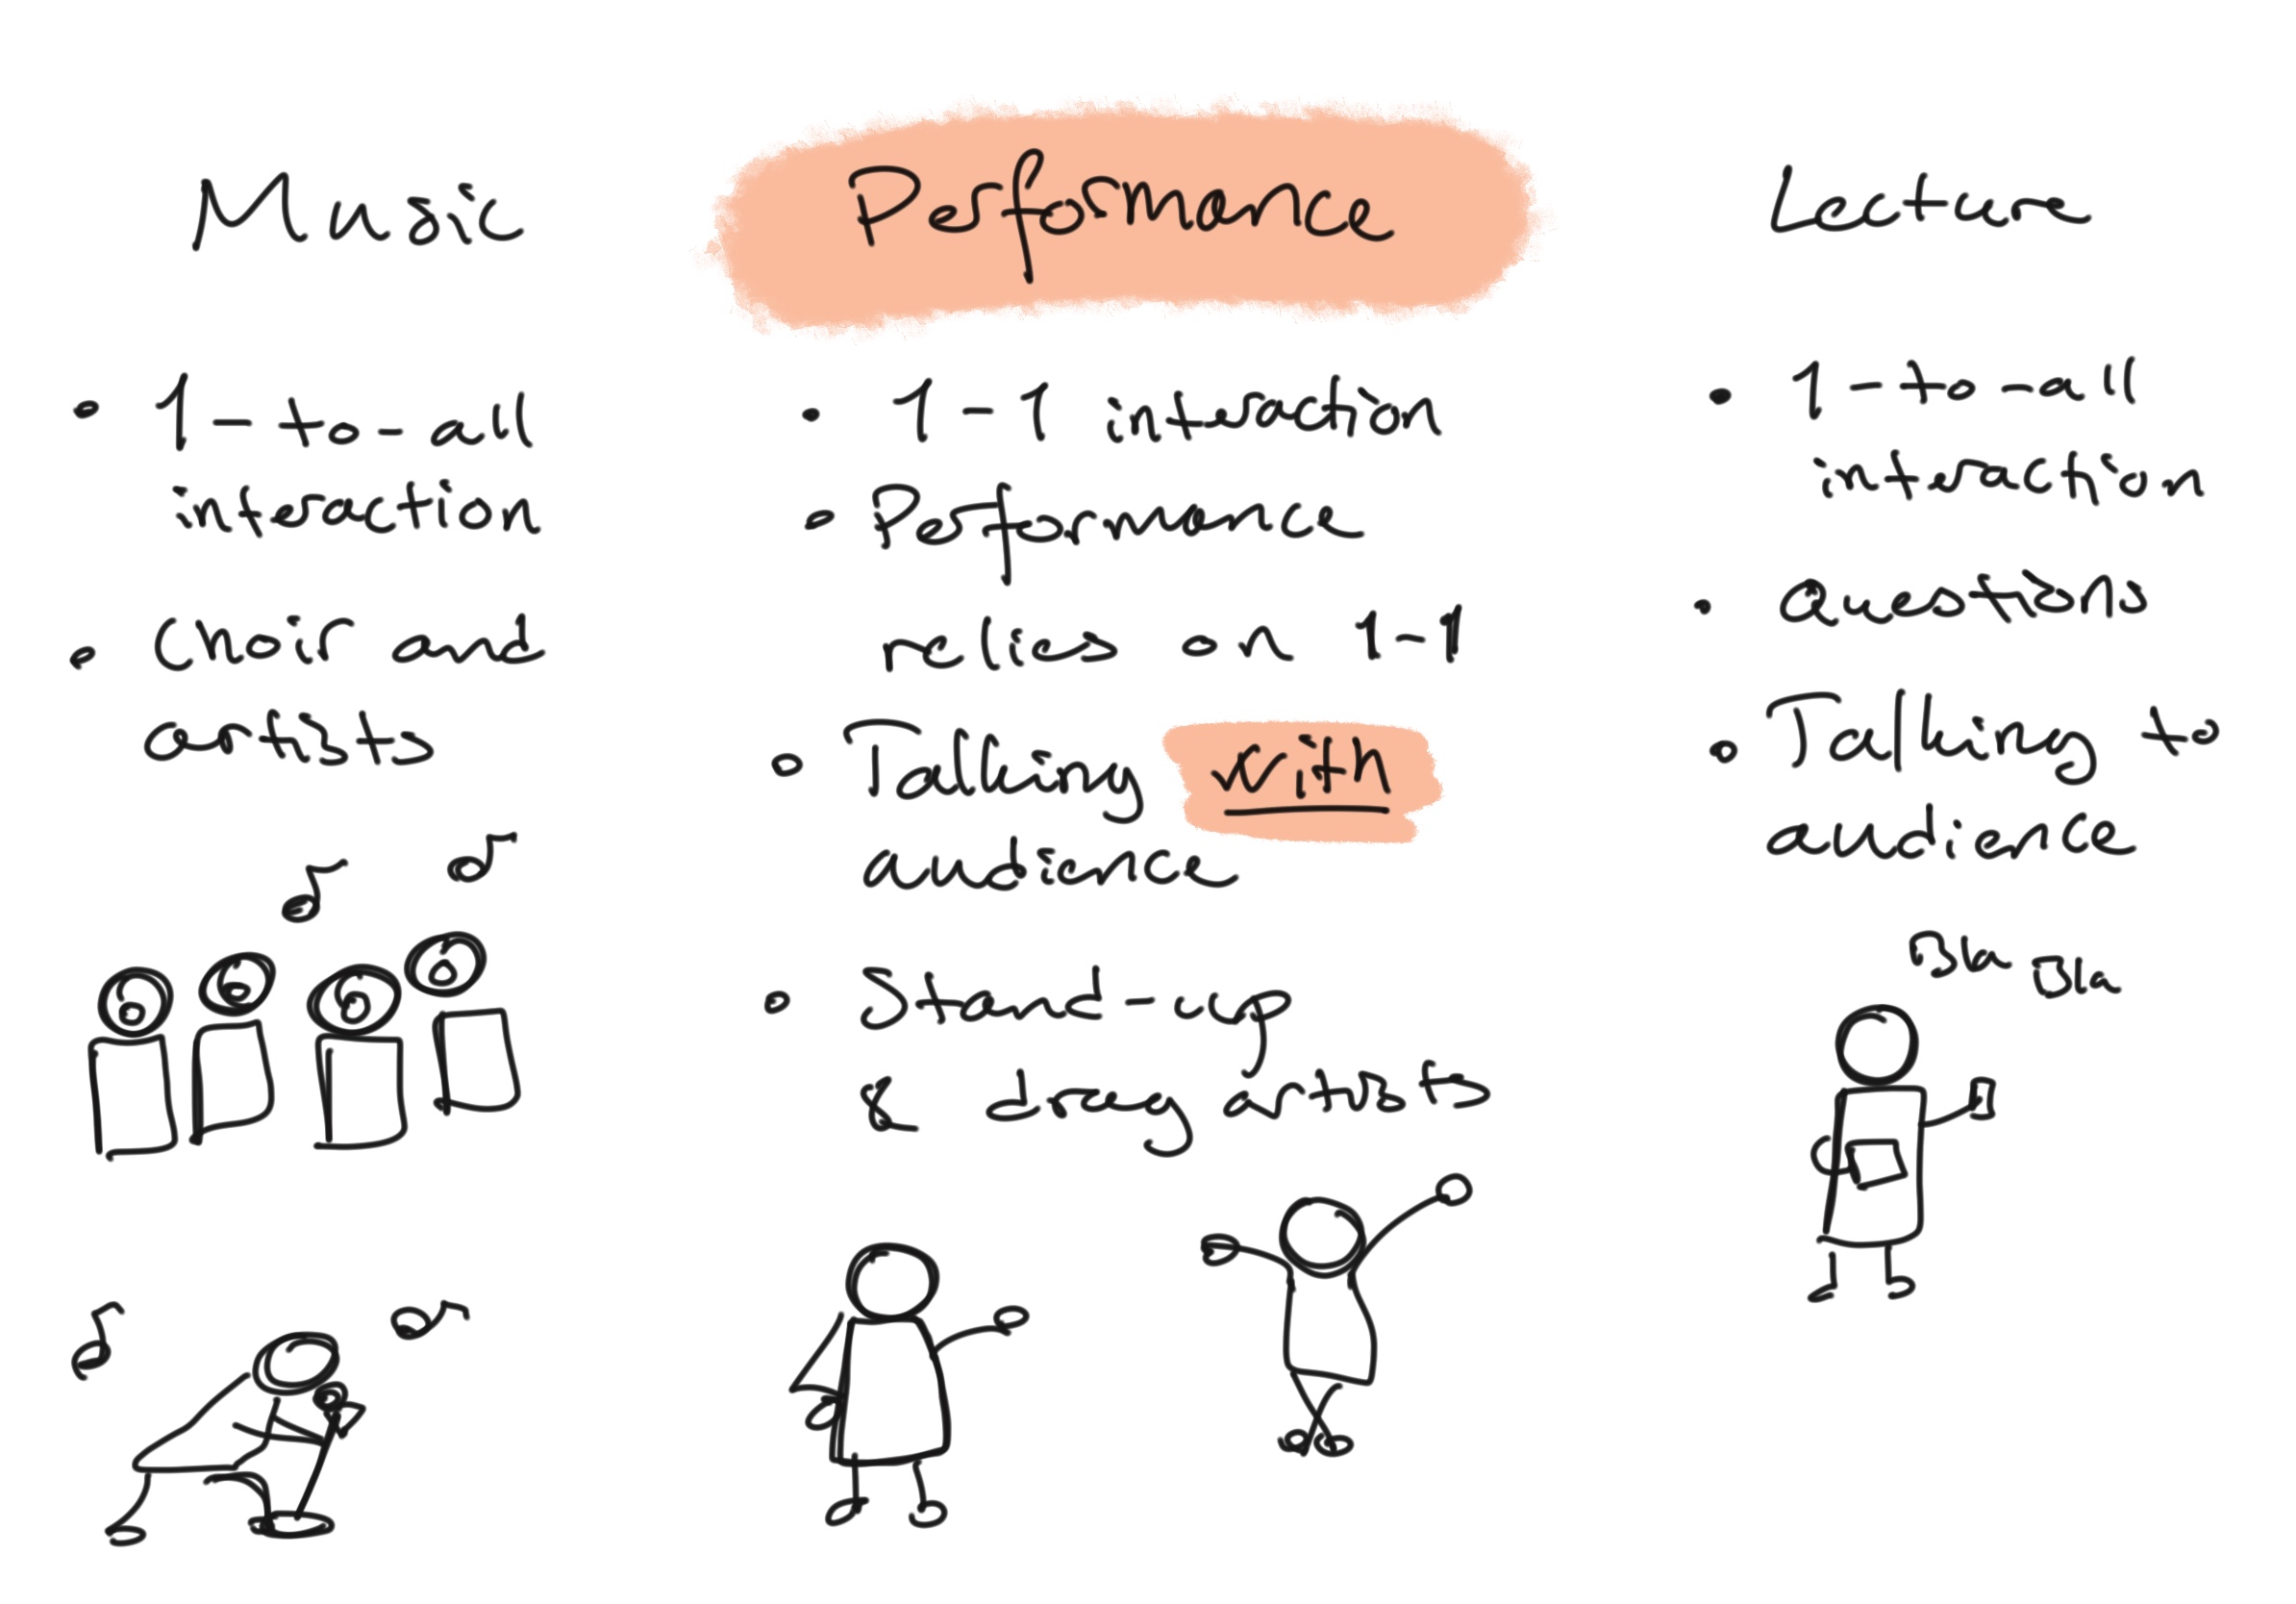 Music
• 1-to-all
interaction
• Choir and
artists
Performance
• 1-1 interaction
• Performance
relies on 1-1
• Talking with
audience
• Stand-up
& drag artists
Lecture
• 1-to-all
interaction
• Questions
• Talking to
audience
Bla Bla